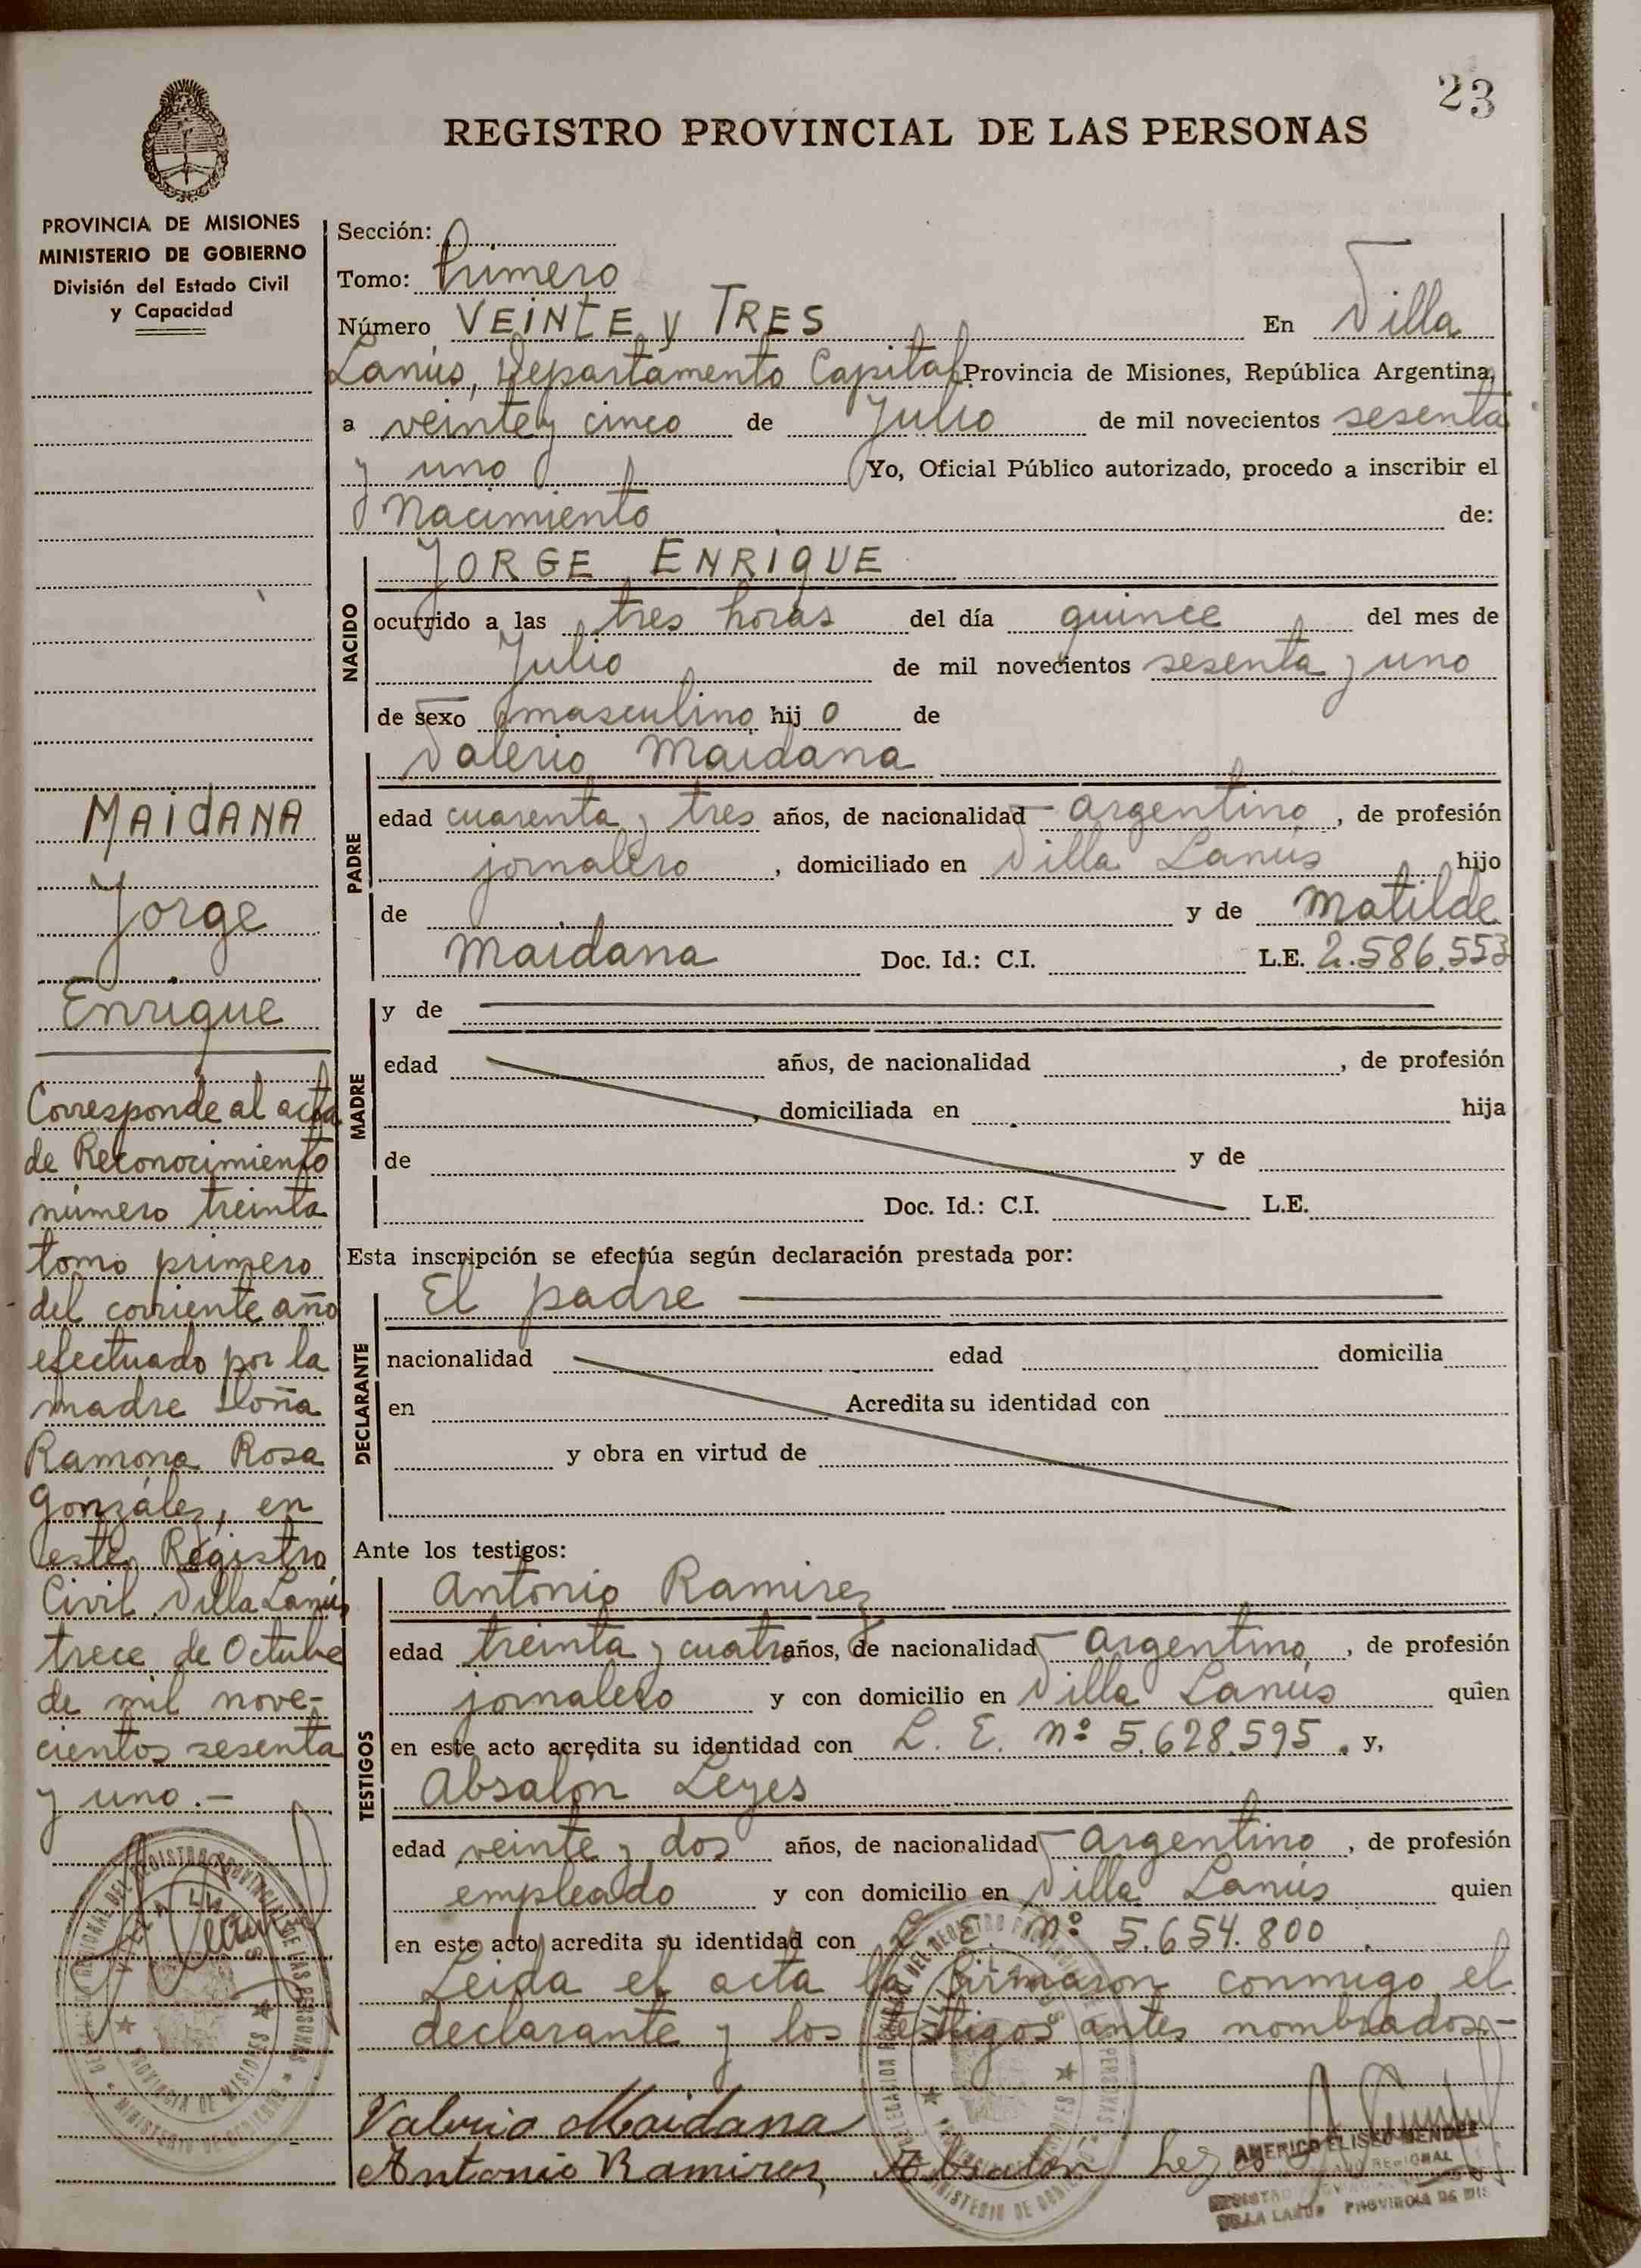 23
REGISTRO PROVINCIAL DE LAS PERSONAS
PROVINCIA DE MISIONES
MINISTERIO DE GOBIERNO
División del Estado Civil
y Capacidad
MAIDANA
Jorge
Enrique
Corresponde al acta
de Reconocimiento
número treinta
tomo primero
del corriente año
efectuado por la
madre Doña
Ramona Rosa
González, en
este Registro
Civil Villa Lanús,
trece de Octubre
de mil nove-
cientos sesenta
y uno.-
Sección:
Tomo: Primero
Número VEINTE y TRES En Villa
Lanús, Departamento Capital Provincia de Misiones, República Argentina,
a veinte y cinco de Julio de mil novecientos sesenta
y uno Yo, Oficial Público autorizado, procedo a inscribir el
Nacimiento de:
NACIDO
JORGE ENRIQUE
ocurrido a las tres horas del día quince del mes de
Julio de mil novecientos sesenta y uno
de sexo masculino hij o de
PADRE
Valerio Maidana
edad cuarenta y tres años, de nacionalidad argentino, de profesión
jornalero, domiciliado en Villa Lanús hijo
de y de Matilde
Maidana Doc. Id.: C.I. L.E. 2.586.553
MADRE
y de
edad años, de nacionalidad , de profesión
, domiciliada en hija
de y de
Doc. Id.: C.I. L.E.
Esta inscripción se efectúa según declaración prestada por:
DECLARANTE
El padre
nacionalidad edad domicilia
en Acredita su identidad con
y obra en virtud de
Ante los testigos:
TESTIGOS
Antonio Ramirez
edad treinta y cuatro años, de nacionalidad argentino, de profesión
jornalero y con domicilio en Villa Lanús quien
en este acto acredita su identidad con L. E. Nº 5.628.595. y,
Absalon Leyes
edad veinte y dos años, de nacionalidad argentino, de profesión
empleado y con domicilio en Villa Lanús quien
en este acto acredita su identidad con L. E. Nº 5.654.800.
Leida el acta la firmaron conmigo el
declarante y los testigos antes nombrados.-
Valerio Maidana
Antonio Ramirez Absalón Leyes
AMERICO ELISEO MENDEZ
VILLA LANUS PROVINCIA DE MIS